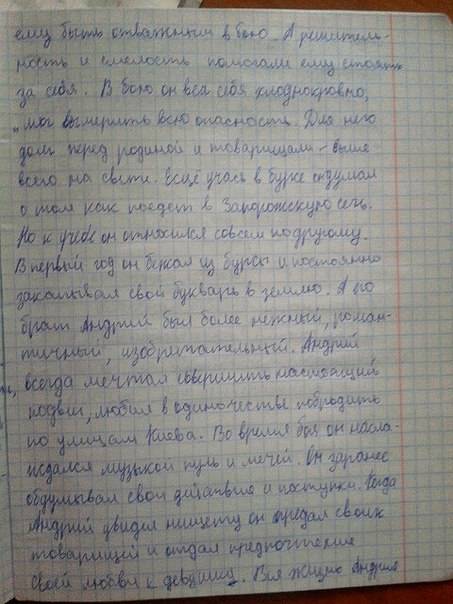 ему быть отважным в бою. А решитель-
ность и смелость помогали ему стоять
за себя. В бою он вёл себя хлоднокровно,
мог вымерить всю опасность. Для него
долг перед родиной и товарищами - выше
всего на свете. Ещё учась в бурсе он думал
о том как поедет в Запорожскую сечь.
Но к учёбе он относился совсем подругому.
В первый год он бежал из бурсы и постоянно
закапывал свой букварь в землю. А его
брат Андрий был более нежный, роман-
тичный, изобритательный. Андрий
всегда мечтал совершить настоящий
подвиг, любил в одиночестве побродить
по улицам Киева. Во время боя он насла-
ждался музыкой пуль и мечей. Он заранее
обдумывал свои действия и поступки. Когда
Андрий увидел нищету он предал своих
товарищей и отдал предпочтение
своей любви к девушке. Вся жизнь Андрия